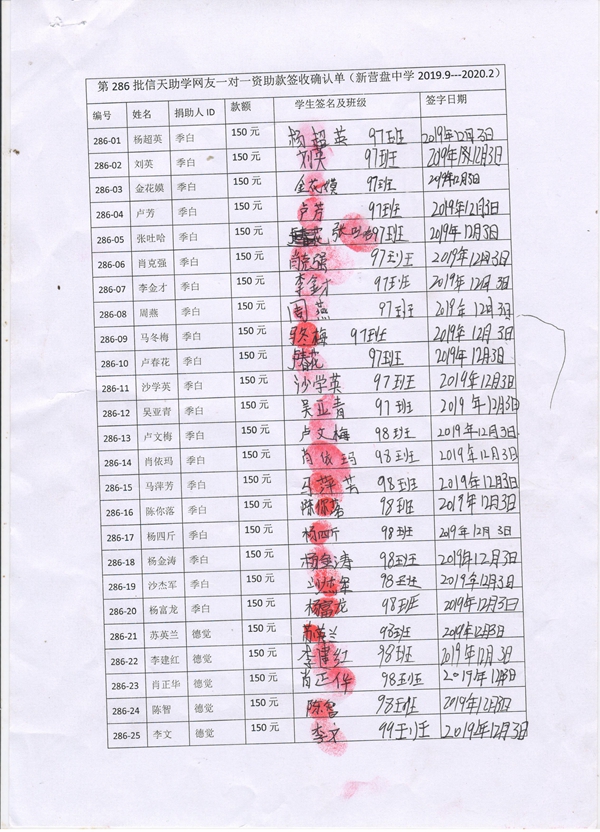 第286批信天助学网友一对一资助款签收确认单（新营盘中学2019.9---2020.2）
编号 姓名 捐助人ID 款额 学生签名及班级 签字日期
286-01 杨超英 季白 150元 杨超英 97班 2019年12月3日
286-02 刘英 季白 150元 刘英 97班 2019年12月3日
286-03 金花嫫 季白 150元 金花嫫 97班 2019年12月3日
286-04 卢芳 季白 150元 卢芳 97班 2019年12月3日
286-05 张吐哈 季白 150元 张吐哈 97班 2019年12月3日
286-06 肖克强 季白 150元 肖克强 97班 2019年12月3日
286-07 李金才 季白 150元 李金才 97班 2019年12月3日
286-08 周燕 季白 150元 周燕 97班 2019年12月3日
286-09 马冬梅 季白 150元 马冬梅 97班 2019年12月3日
286-10 卢春花 季白 150元 卢春花 97班 2019年12月3日
286-11 沙学英 季白 150元 沙学英 97班 2019年12月3日
286-12 吴亚青 季白 150元 吴亚青 97班 2019年12月3日
286-13 卢文梅 季白 150元 卢文梅 98班 2019年12月3日
286-14 肖依玛 季白 150元 肖依玛 98班 2019年12月3日
286-15 马萍芳 季白 150元 马萍芳 98班 2019年12月3日
286-16 陈你落 季白 150元 陈你落 98班 2019年12月3日
286-17 杨四斤 季白 150元 杨四斤 98班 2019年12月3日
286-18 杨金涛 季白 150元 杨金涛 98班 2019年12月3日
286-19 沙杰军 季白 150元 沙杰军 98班 2019年12月3日
286-20 杨富龙 季白 150元 杨富龙 98班 2019年12月3日
286-21 苏英兰 德觉 150元 苏英兰 98班 2019年12月3日
286-22 李建红 德觉 150元 李建红 98班 2019年12月3日
286-23 肖正华 德觉 150元 肖正华 98班 2019年12月3日
286-24 陈智 德觉 150元 陈智 98班 2019年12月3日
286-25 李文 德觉 150元 李文 99班 2019年12月3日